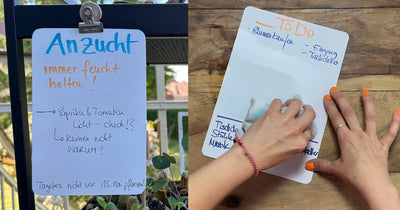 Anzucht
immer feucht
halten!
→ Paprika & Tomaten
Licht-check!?
↳ keimen nicht
warum?
Tagetes nicht vor 15. Mai pflanzen!
To Do
Blumenkaufen
- Eingang
- Tischdeko
Tischdo